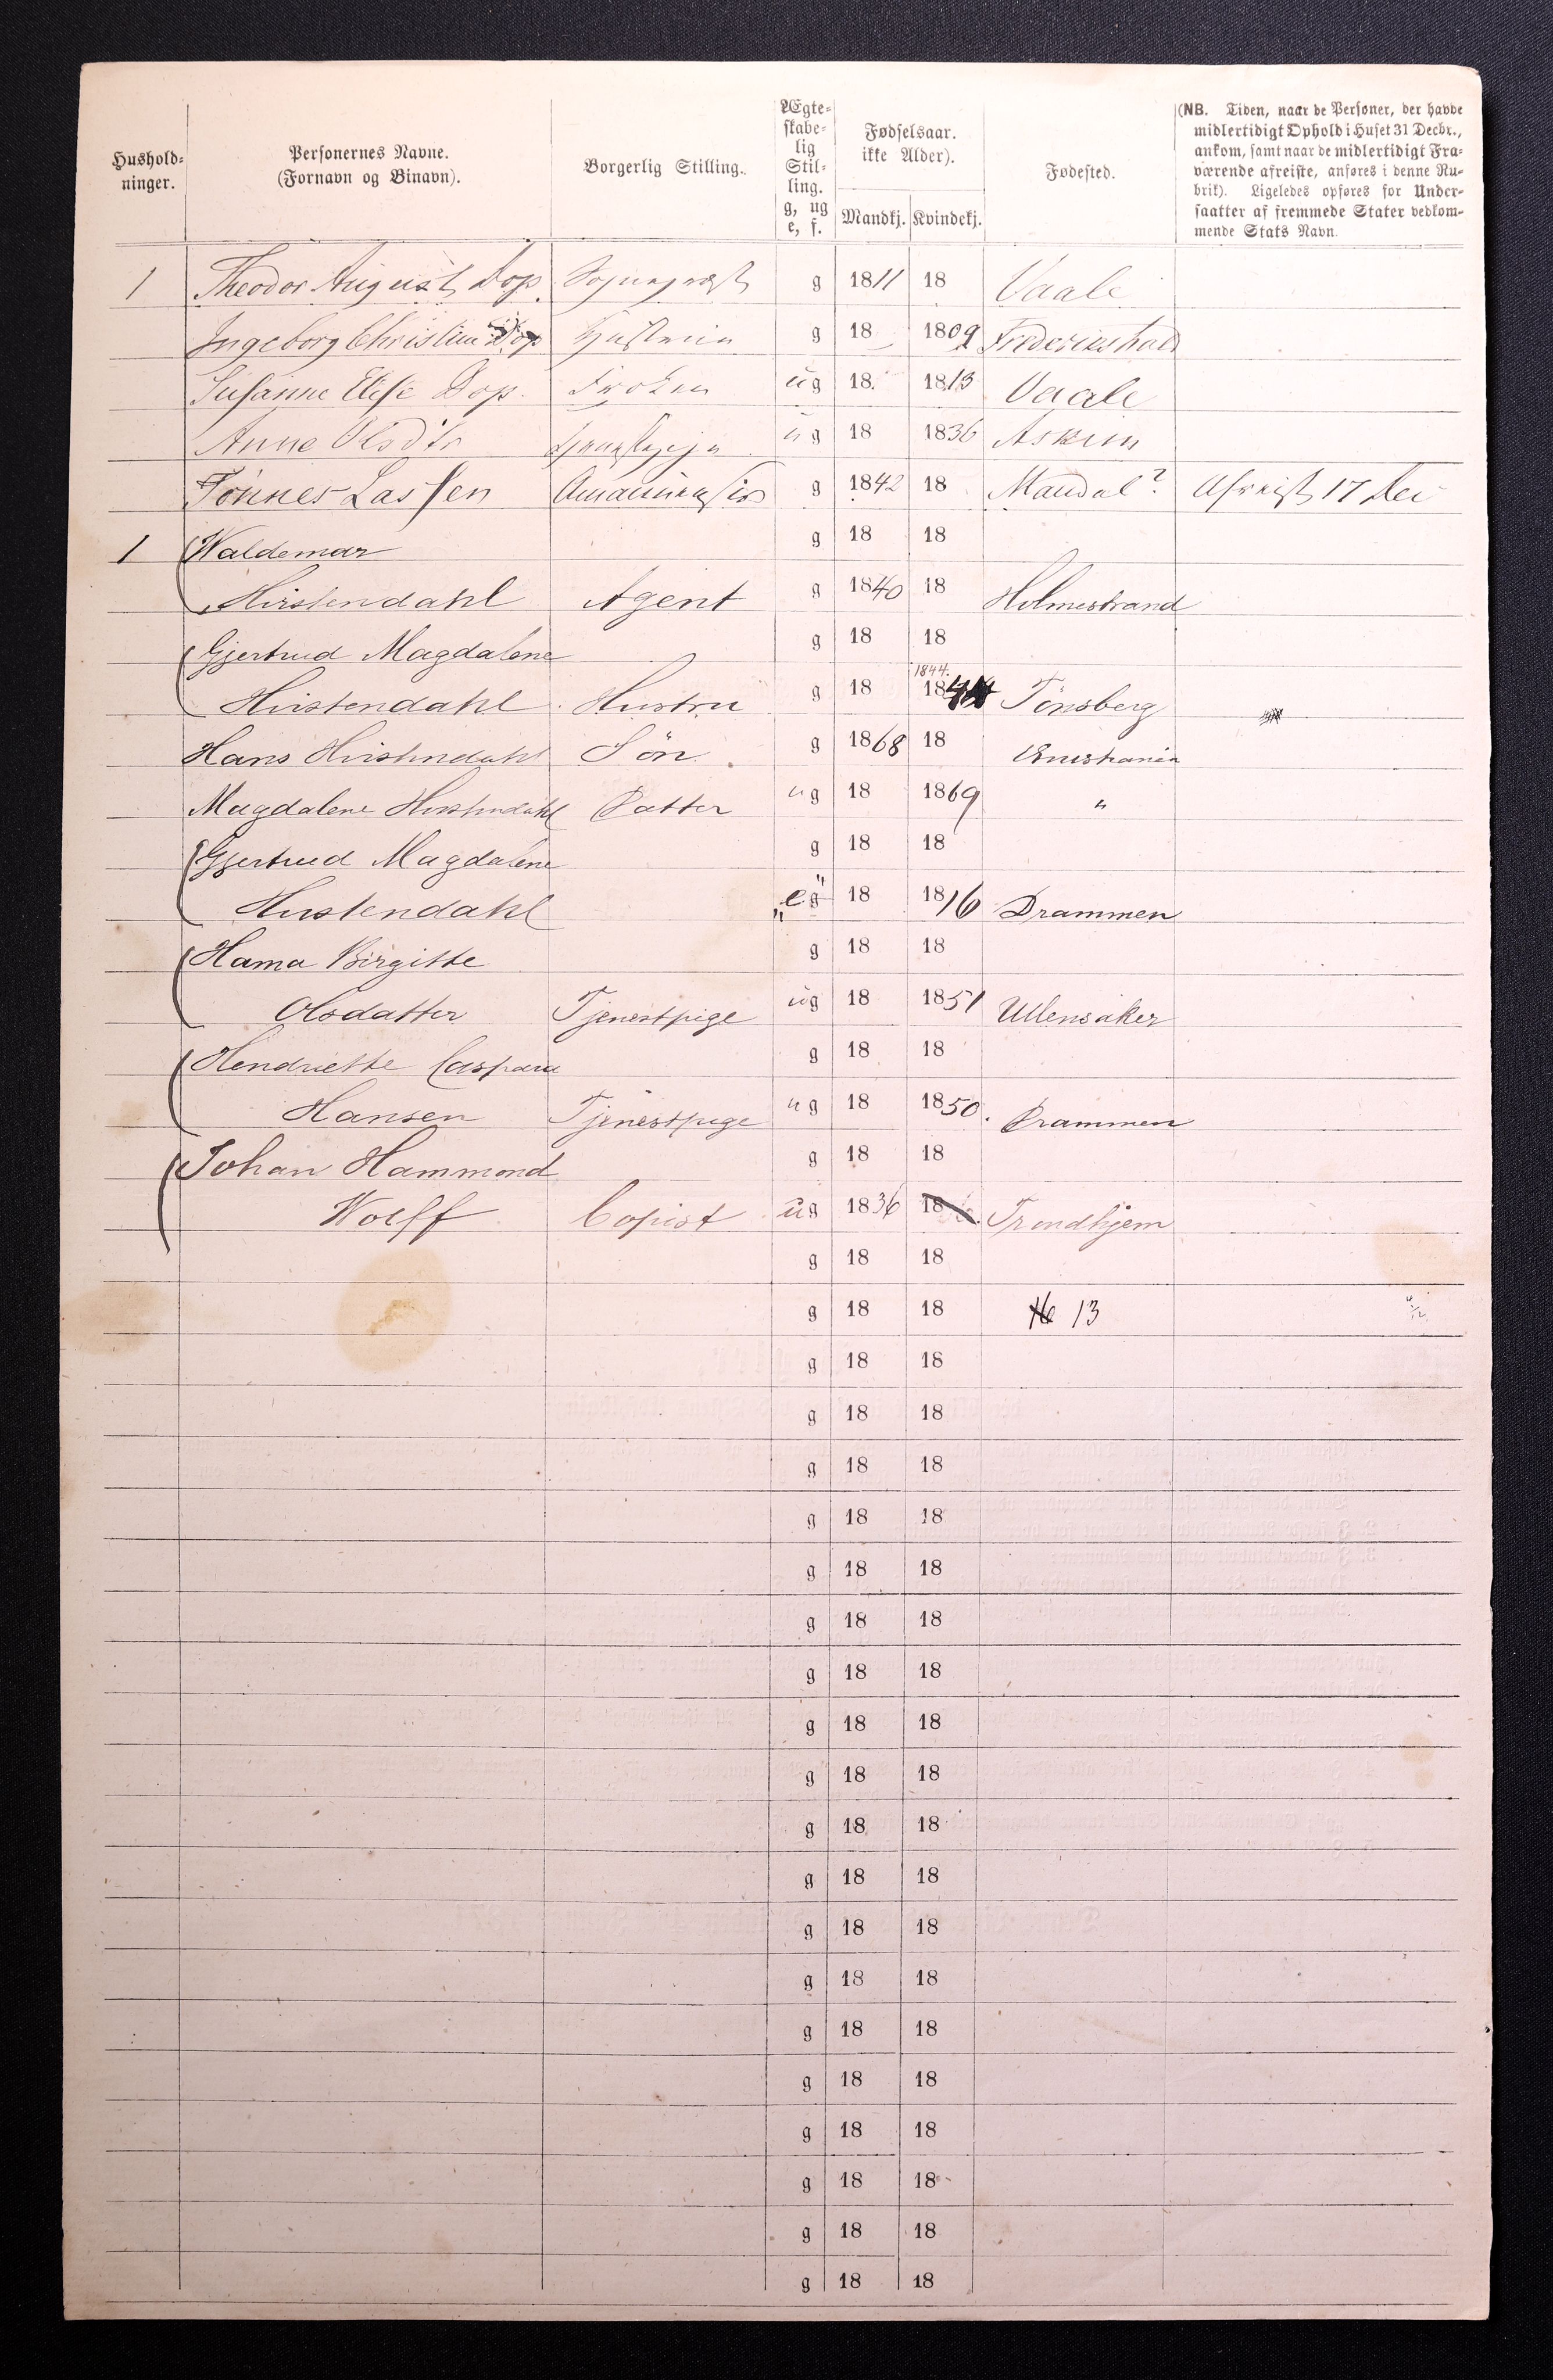 Hushold-
ninger.
Personernes Navne.
(Fornavn og Binavn).
Borgerlig Stilling.
Ægte-
skabe-
lig
Stil-
ling.
g, ug
e, f.
Fødselsaar.
ikke Alder).
Mandkj. Kvindekj.
Fødested.
(NB. Tiden, naar de Personer, der havde
midlertidigt Ophold i Huset 31 Decbr.,
ankom, samt naar de midlertidigt Fra-
værende afreiste, anføres i denne Ru-
brik). Ligeledes opføres for Under-
saatter af fremmede Stater vedkom-
mende Stats Navn.
1 Theodor August Dop. Sognepræst g 1811 18 Vaale
Ingeborg Christine Dop Hustru g 18 1809 Frederikshald
Susanne Elise Dop. Frøken ug 18 1813 Vaale
Anne Olsdtr ug 18 1836 Askim
Tönnes Lassen g 1842 18 Mandal? Afreist 17 Dec
1 Waldemar g 18 18
Hirstendahl Agent g 1840 18 Holmestrand
Gjertrud Magdalene g 18 18
1844.
Hirstendahl Hustru g 18 18 Tönsberg
Hans Hirstendahl Sön g 1868 18 Christiania
Magdalene Hirstendahl Datter ug 18 1869 "
Gjertrud Magdalene g 18 18
Hirstendahl "e g" 18 1816 Drammen
Hama Birgitte g 18 18
Olsdatter Tjenestpige ug 18 1851 Ullensaker
Hendriette Caspara g 18 18
Hansen Tjenestpige ug 18 1850. Drammen
Johan Hammond g 18 18
Wolff Copist ug 1836 18 Trondhjem
g 18 18
g 18 18 16 13
g 18 18
g 18 18
g 18 18
g 18 18
g 18 18
g 18 18
g 18 18
g 18 18
g 18 18
g 18 18
g 18 18
g 18 18
g 18 18
g 18 18
g 18 18
g 18 18
g 18 18
g 18 18
g 18 18